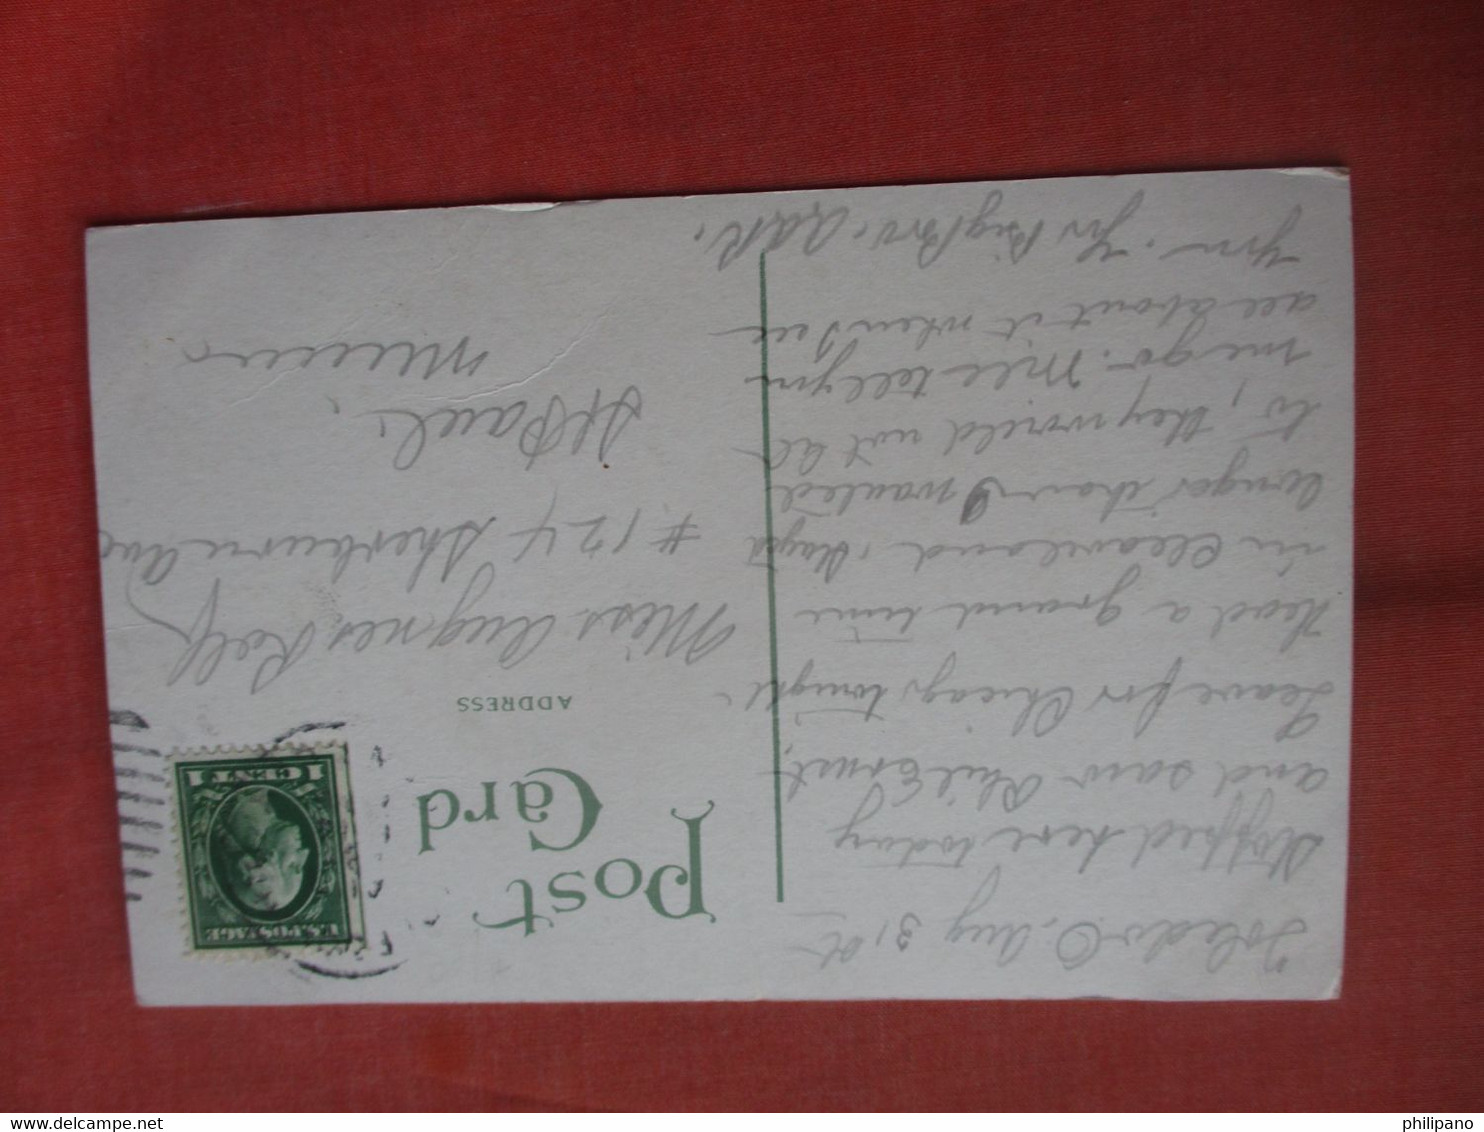 Toledo O. Aug 31st
Stopped here today
and saw Phil Ernst,
Leave for Chicago tonight.
Had a grand time
in Cleaveland, stayed
longer than I wanted
to, they would not let
me go. Will tell you
all about it when I see
you. Yr Big Bro.
Post
Card
ADDRESS
U.S. POSTAGE
1 CENT 1
Miss Augnes Rolf
#124 Sherburne Ave
St Paul.
Minn
delcampe.net
philipano